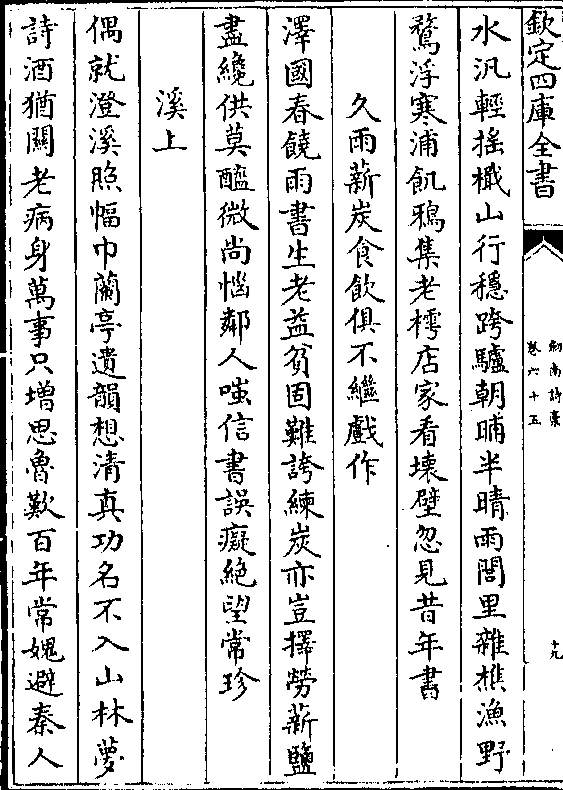 欽定四庫全書
劍南詩稾
卷六十五
十九
水汎輕揺檝山行穩跨驢朝晡半晴雨閭里雜樵漁野
鶩浮寒浦飢鴉集老樗店家看壊壁忽見昔年書
久雨薪炭食飲俱不繼戲作
澤國春饒雨書生老益貧固難誇練炭亦豈擇勞薪鹽
盡纔供莫醯微尚惱鄰人嗤信書誤癡絶望常珍
溪上
偶就澄溪照幅巾蘭亭遺韻想清真功名不入山林夢
詩酒猶關老病身萬事只增思魯歎百年常媿避秦人